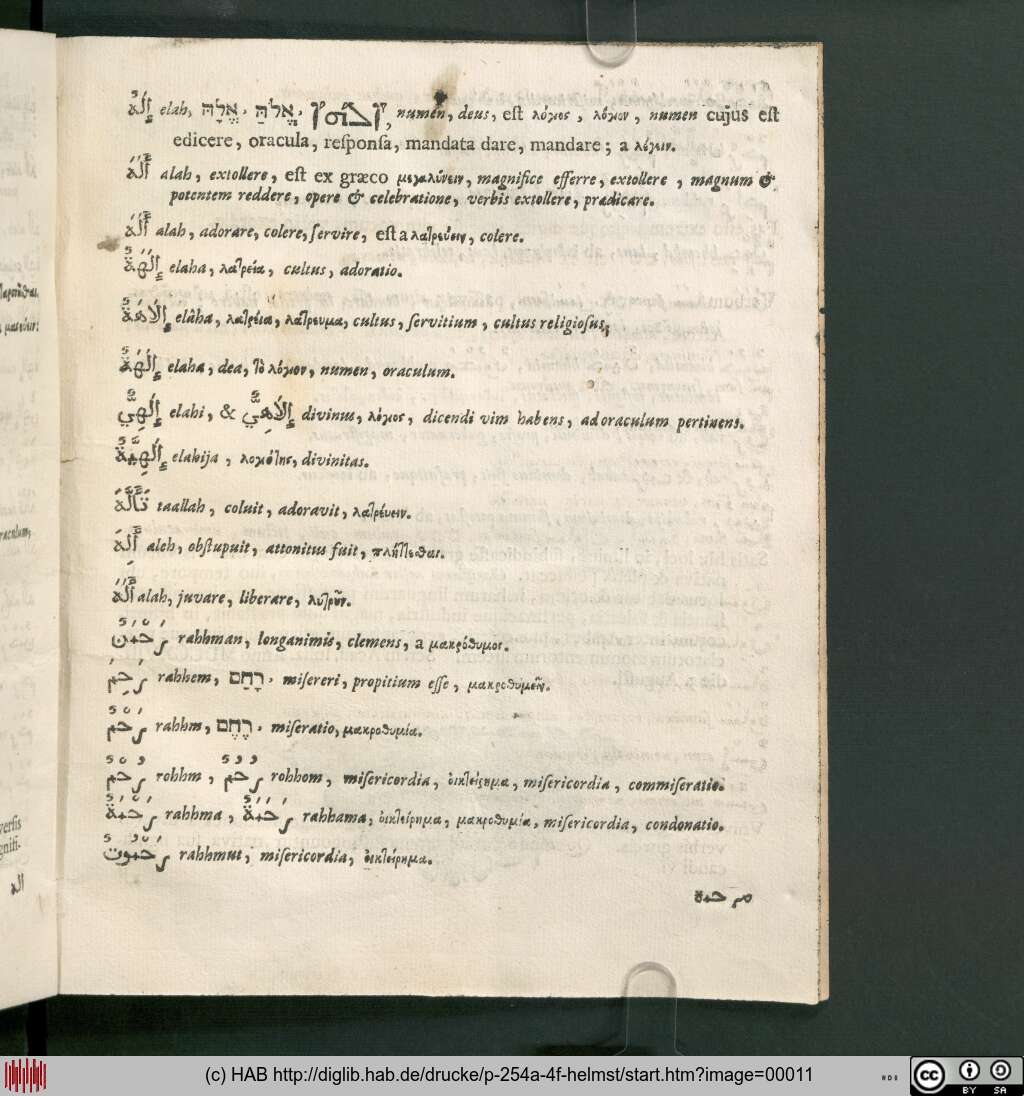 إِلَٰه elah, אֱלָהּ. אֱלֹהַּ. numen, deus, eſt λόγιος, λόγιον, numen cujus eſt
edicere, oracula, reſponſa, mandata dare, mandare; a λέγειν.
أَلَّهَ alah, extollere, eſt ex græco μεγαλύνειν, magnifice efferre, extollere, magnum &
potentem reddere, opere & celebratione, verbis extollere, prædicare.
أَلَّهَ alah, adorare, colere, ſervire, eſt a λατρεύειν, colere.
إِلَهَةٌ elaha, λατρεία, cultus, adoratio.
إِلَاهَةٌ elâha, λατρεία, λάτρευμα, cultus, ſervitium, cultus religioſus,
إِلَهَةٌ elaha, dea, τὸ λόγιον, numen, oraculum.
إِلَهِيٌّ elahi, & إِلَاهِيٌّ divinus, λόγιος, dicendi vim habens, ad oraculum pertinens.
إِلَهِيَّةٌ elahija, λογιότης, divinitas.
تَأَلَّهَ taallah, coluit, adoravit, λατρέυειν.
أَلِهَ aleh, obſtupuit, attonitus fuit, πλήττεσθαι.
أَلَهَ alah, juvare, liberare, λυτρῦν.
رَحْمَنٌ rahhman, longanimis, clemens, a μακρόθυμος.
رَحِمَ rahhem, רָחַם. miſereri, propitium eſſe, μακροθυμεῖν.
رَحْمٌ rahhm, רֶחֶם. miſeratio, μακροθυμία.
رُحْمٌ rohhm, رُحُمٌ rohhom, miſericordia, οἰκτείρημα, miſericordia, commiſeratio.
رَحْمَةٌ rahhma, رَحَمَةٌ rahhama, οἰκτείρημα, μακροθυμία, miſericordia, condonatio.
رَحْمُوتٌ rahhmut, miſericordia, οἰκτείρημα.
مرحمة
(c) HAB http://diglib.hab.de/drucke/p-254a-4f-helmst/start.htm?image=00011
HAB
cc BY SA